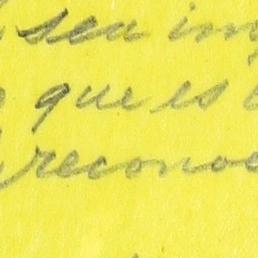 seu im
que es
reconve